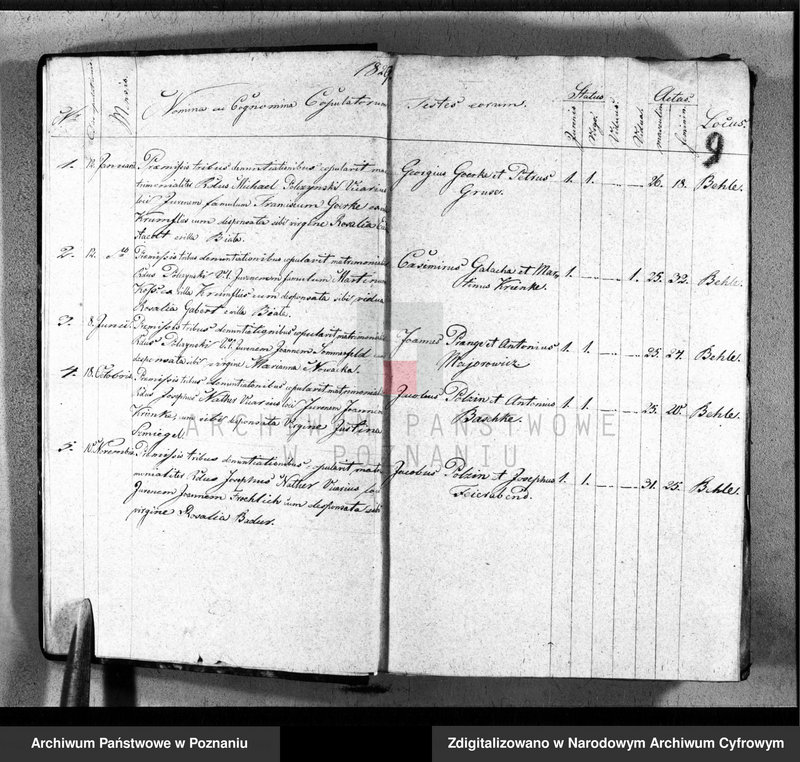 1829
9
Nr. Mensis Nomina et Cognomina Copulatorum Testes eorum. Status Aetas Locus.
Juvenis Virgo Viduus Vidua masculini feminini
1. 12. Januarii Praemissis tribus denuntiationibus copulavit ma-
trimonialiter Rdus Michael Polczynski Vicarius
loci Juvenem famulum Franciscum Goerke
Krumflies cum desponsata sibi virgine Rosalia
e villa Biala.
Georgius Goerke et Petrus
Gruse.
1. 1. 26. 18. Behle.
2. 12. Praemissis tribus denuntiationibus copulavit matrimonialiter
Rdus Polczynski V. l. Juvenem famulum Martinum
Koss ex villa Krumflies cum desponsata sibi vidua
Rosalia Gabert e villa Biale.
Casimirus Galacha et Mar-
tinus Krienke.
1. 1. 25. 32. Behle.
3. 8. Junii Praemissis tribus denuntiationibus copulavit matrimonialiter
Rdus Polczynski V. l. Juvenem Joannem Sommerfeld cum
desponsata sibi virgine Marianna Nowacka.
Joannes Prange et Antonius
Majorowicz
1. 1. 25. 24. Behle.
4. 18. Octobris Praemissis tribus denuntiationibus copulavit matrimonialiter
Rdus Josephus Nather Vicarius loci Juvenem Joannem
Kronke, cum sibi desponsata Virgine Justina
Semiegel.
Jacobus Polzin et Antonius
Baschke.
1. 1. 25. 20. Behle.
5. 15. Novembris Praemissis tribus denuntiationibus copulavit matri-
monialiter Rdus Josephus Nather Vicarius loci
Juvenem Joannem Froehlich cum desponsata sibi
virgine Rosalia Badur.
Jacobus Polzin et Josephus
Feierabend.
1. 1. 31. 25. Behle.
ARCHIWUM PAŃSTWOWE
W POZNANIU
Archiwum Państwowe w Poznaniu
Zdigitalizowano w Narodowym Archiwum Cyfrowym